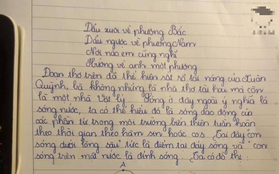 Dẫu xuôi về phương Bắc
Dẫu ngược về phương Nam
Nơi nào em cũng nghĩ
Hướng về anh một phương
Đoạn thơ trên đã thể hiện rất rõ tài năng của Xuân
Quỳnh là không những là nhà thơ tài hoa mà còn
là một nhà Vật lý. Sóng ở đây ngoài ý nghĩa là
sóng nước, ta có thể hiểu đó là sóng dao động của
các phần tử trong môi trường biến thiên tuần hoàn
theo thời gian theo hàm sin hoặc cos. Ta thấy con
sóng dưới lòng sâu tức là điểm tại đáy sóng và con
sóng trên mặt nước là đỉnh sóng. Ta có đồ thị:
A